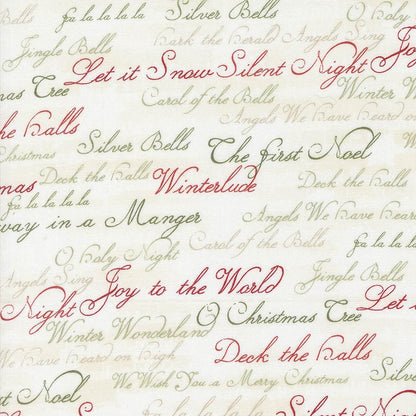 Bells fa la la la la Silver Bells O Holy
Jingle Bells Hark the Herald Angels Sing
Let it Snow Silent Night Joy
mas Tree Carol of the Bells Winter W
Angels We have heard on
he halls Silver Bells The First Noel
Christmas
mas Deck the halls Winterlude Deck the halls
fa la la la la
way in a Manger Angels We have hear
O Holy Night Carol of the Bells fa la la la
Angels Sing Jingle Bells
Night Joy to the World Let i
Winter Wonderland O Christmas Tree
We have heard on high Deck the halls
We Wish You a Merry Christmas Silver
Deck the halls
fa la la la la